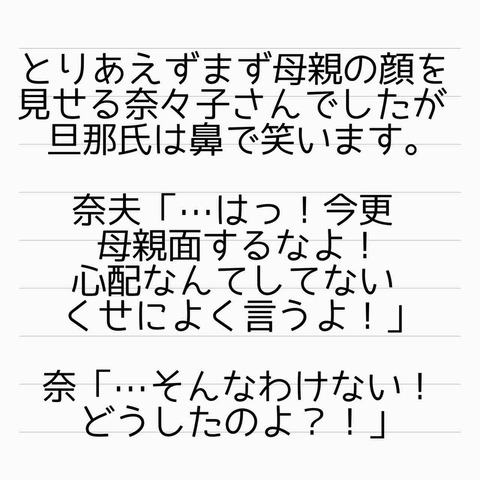 とりあえずまず母親の顔を
見せる奈々子さんでしたが
旦那氏は鼻で笑います。
奈夫「…はっ！今更
母親面するなよ！
心配なんてしてない
くせによく言うよ！」
奈「…そんなわけない！
どうしたのよ？！」